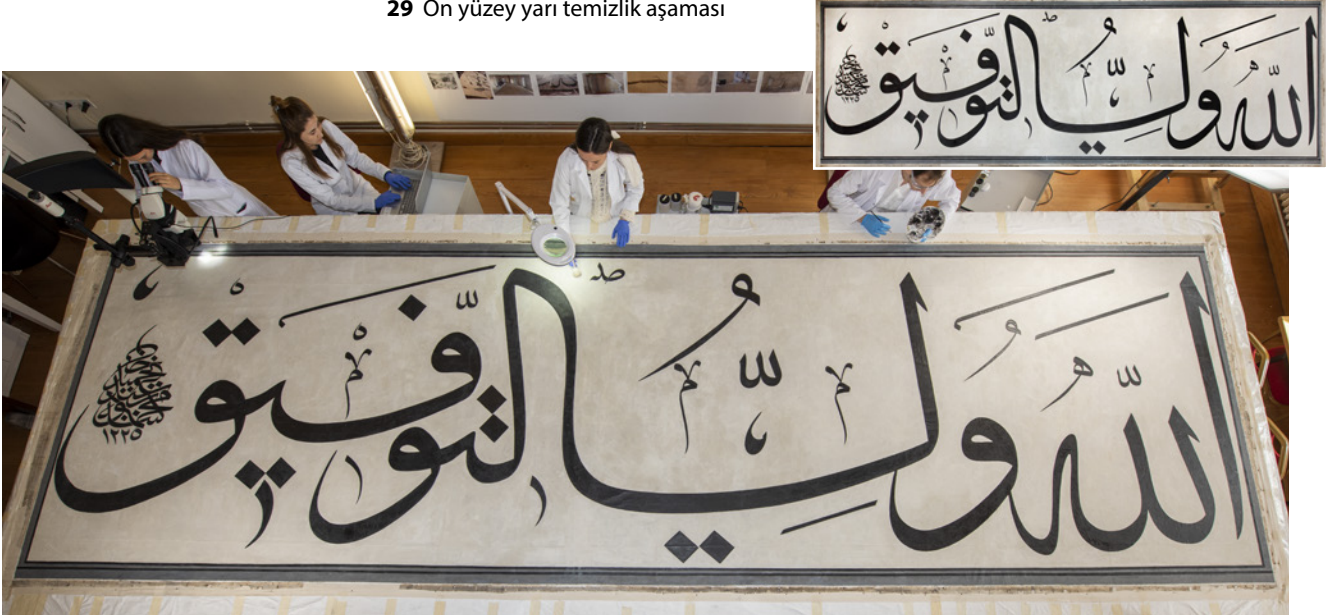 29 Ön yüzey yarı temizlik aşaması
الله ولي التوفيق
١٢٢٥
الله ولي التوفيق
١٢٢٥